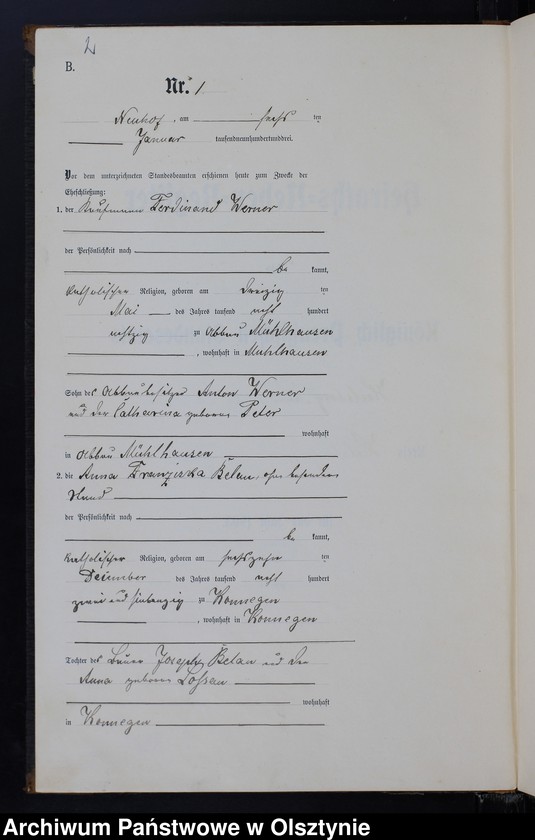 2
B.
Nr. 1
Neuhof, am sechs ten
Januar tausendneunhundertunddrei.
Vor dem unterzeichneten Standesbeamten erschienen heute zum Zwecke der
Eheschließung:
1. der Kaufmann Ferdinand Werner
der Persönlichkeit nach
be kannt,
katholischer Religion, geboren am dreizig ten
Mai des Jahres tausend acht hundert
achtzig zu Abbau Mühlhausen
, wohnhaft in Mühlhausen
Sohn des Abbaubesitzer Anton Werner
und der Catharina geborene Peter
wohnhaft
in Abbau Mühlhausen
2. die Anna Franziska Belau, ohne besonderen
Stand
der Persönlichkeit nach
be kannt,
katholischer Religion, geboren am sechszehn ten
Dezember des Jahres tausend acht hundert
zwei und siebenzig zu Konnegen
, wohnhaft in Konnegen
Tochter des Bauer Joseph Belau und der
Anna geborene
wohnhaft
in Konnegen
Archiwum Państwowe w Olsztynie